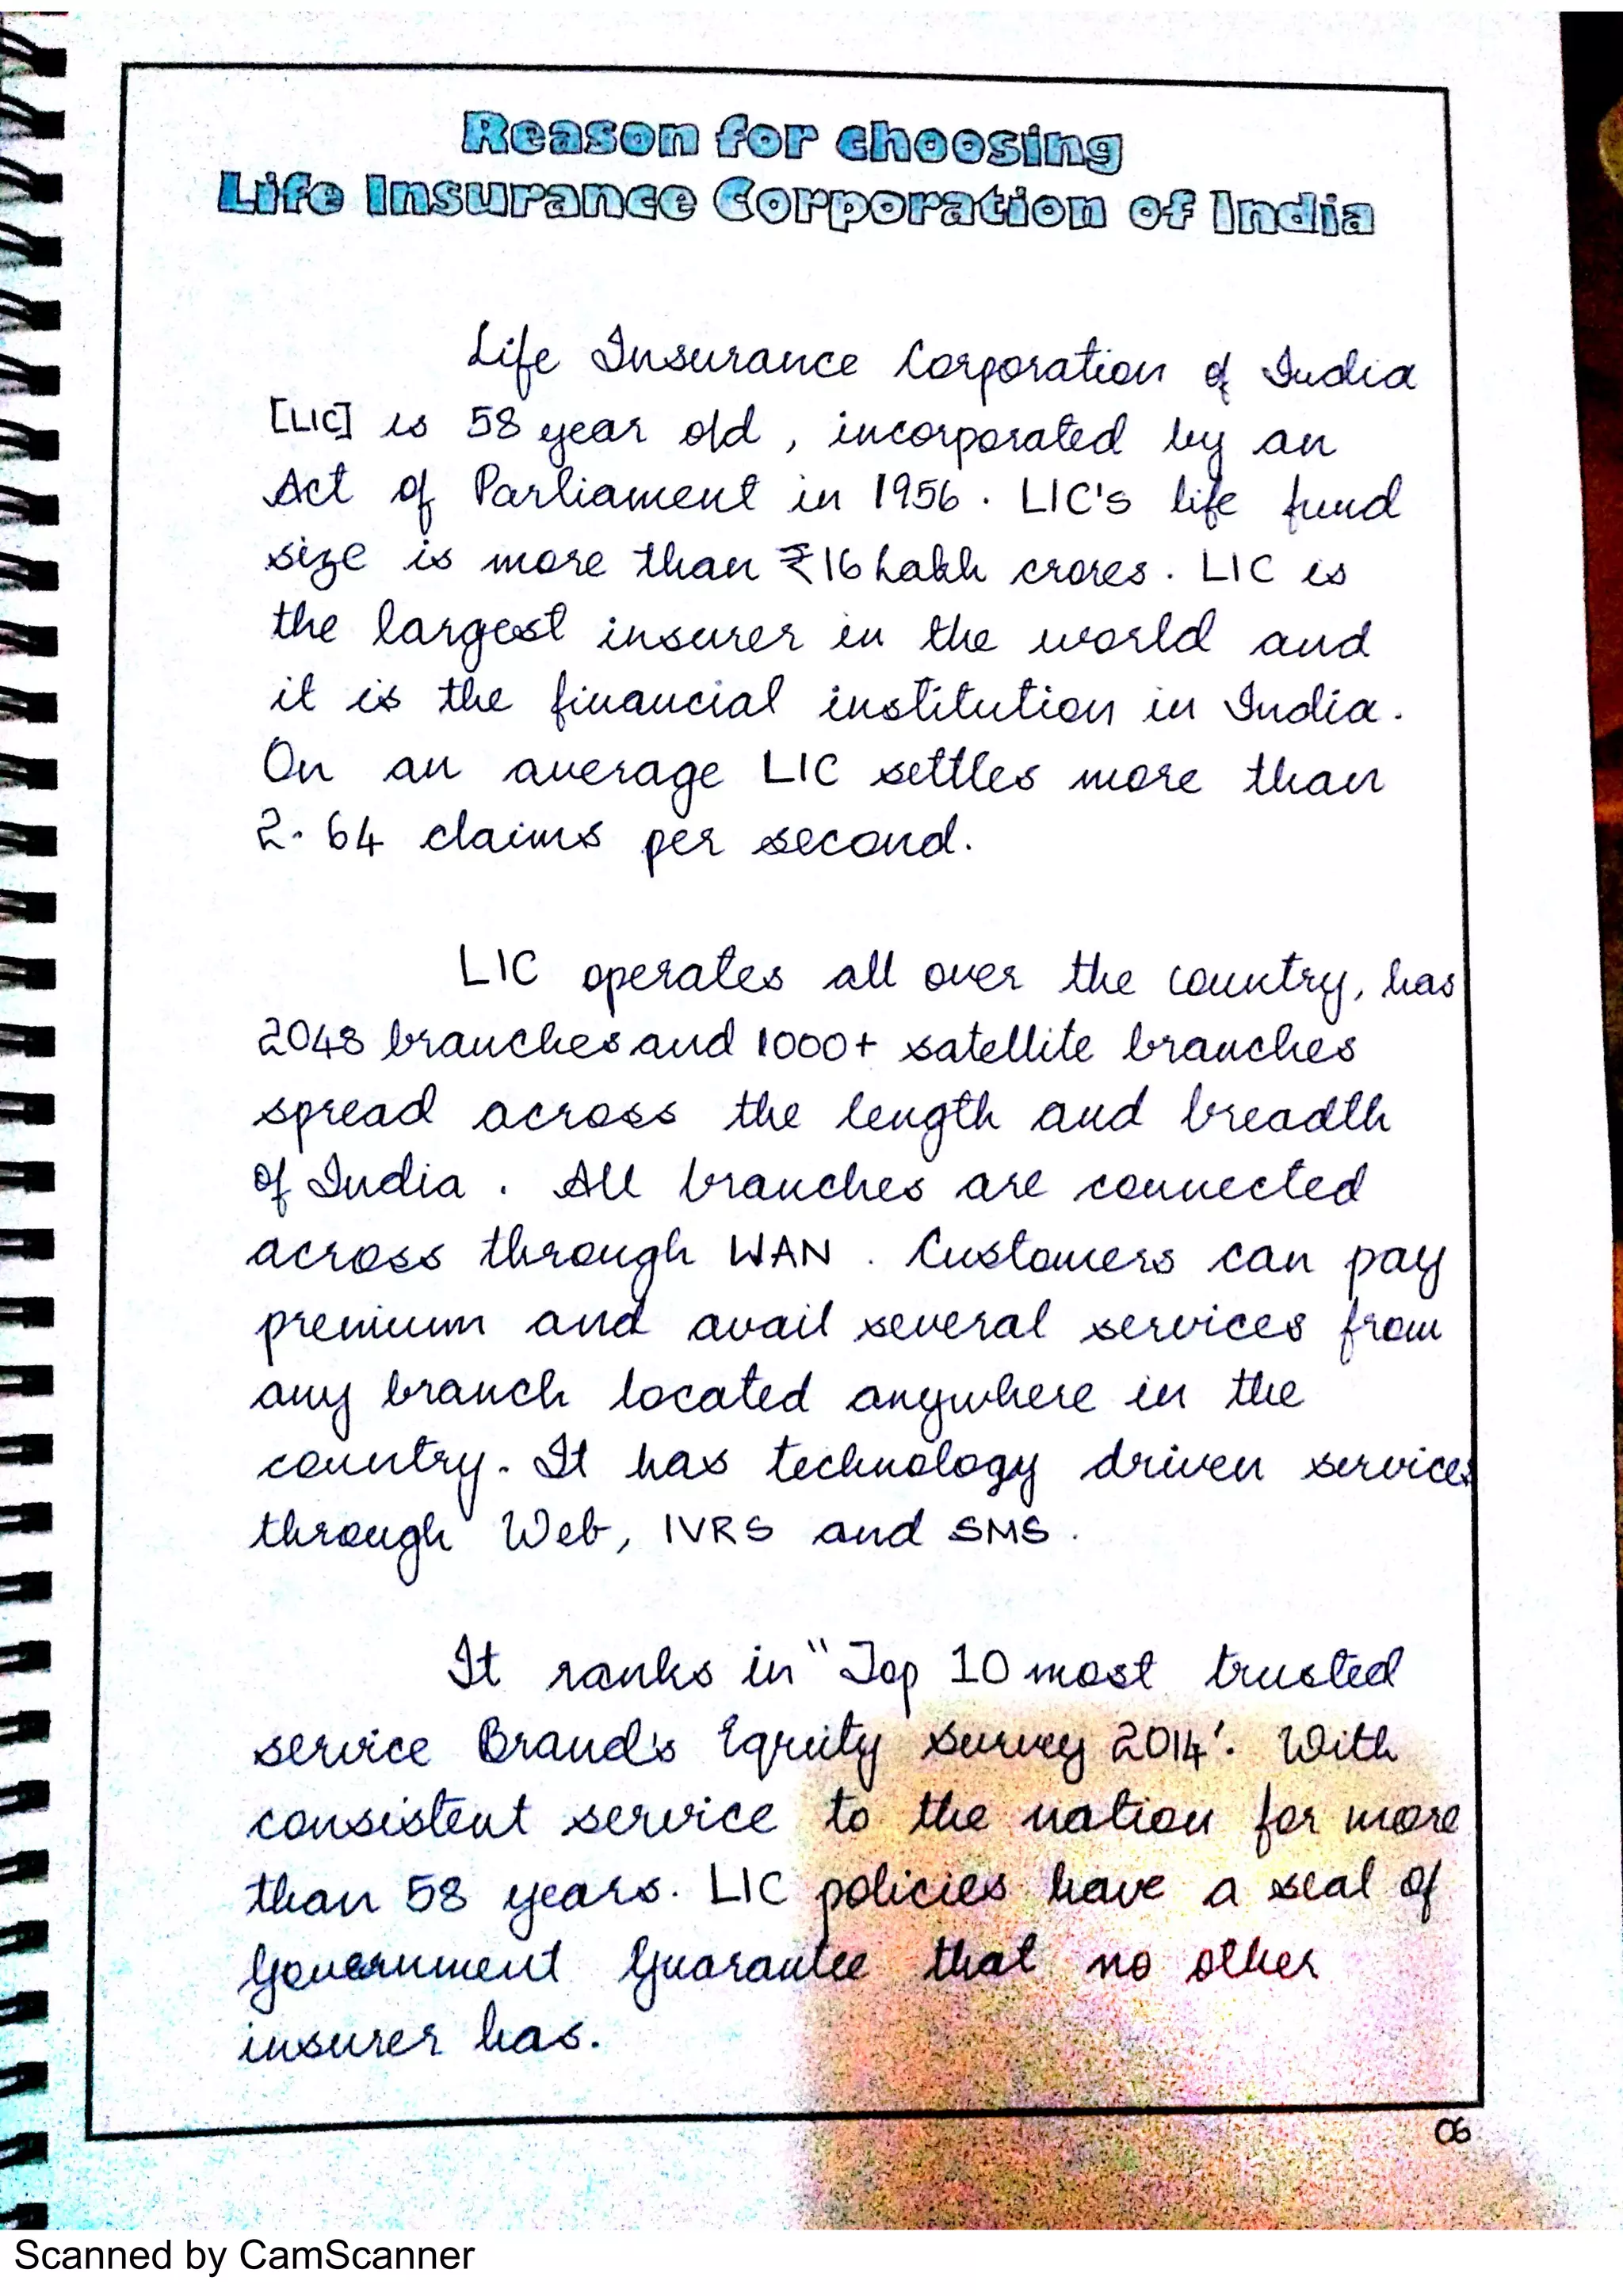 Reason for choosing
Life Insurance Corporation of India
Life Insurance Corporation of India
[LIC] is 58 year old, incorporated by an
Act of Parliament in 1956. LIC's life fund
size is more than ₹16 Lakh crores. LIC is
the largest insurer in the world and
it is the financial institution in India.
On an average LIC settles more than
2.64 claims per second.
LIC operates all over the country, has
2048 branches and 1000+ satellite branches
spread across the length and breadth
of India. All branches are connected
across through WAN. Customers can pay
premium and avail several services from
any branch located anywhere in the
country. It has technology driven services
through Web, IVRS and SMS.
It ranks in "Top 10 most trusted
service Brand's Equity survey 2014'. With
consistent service to the nation for more
than 58 years. LIC policies have a seal of
Government Guarantee that no other
insurer has.
06
Scanned by CamScanner